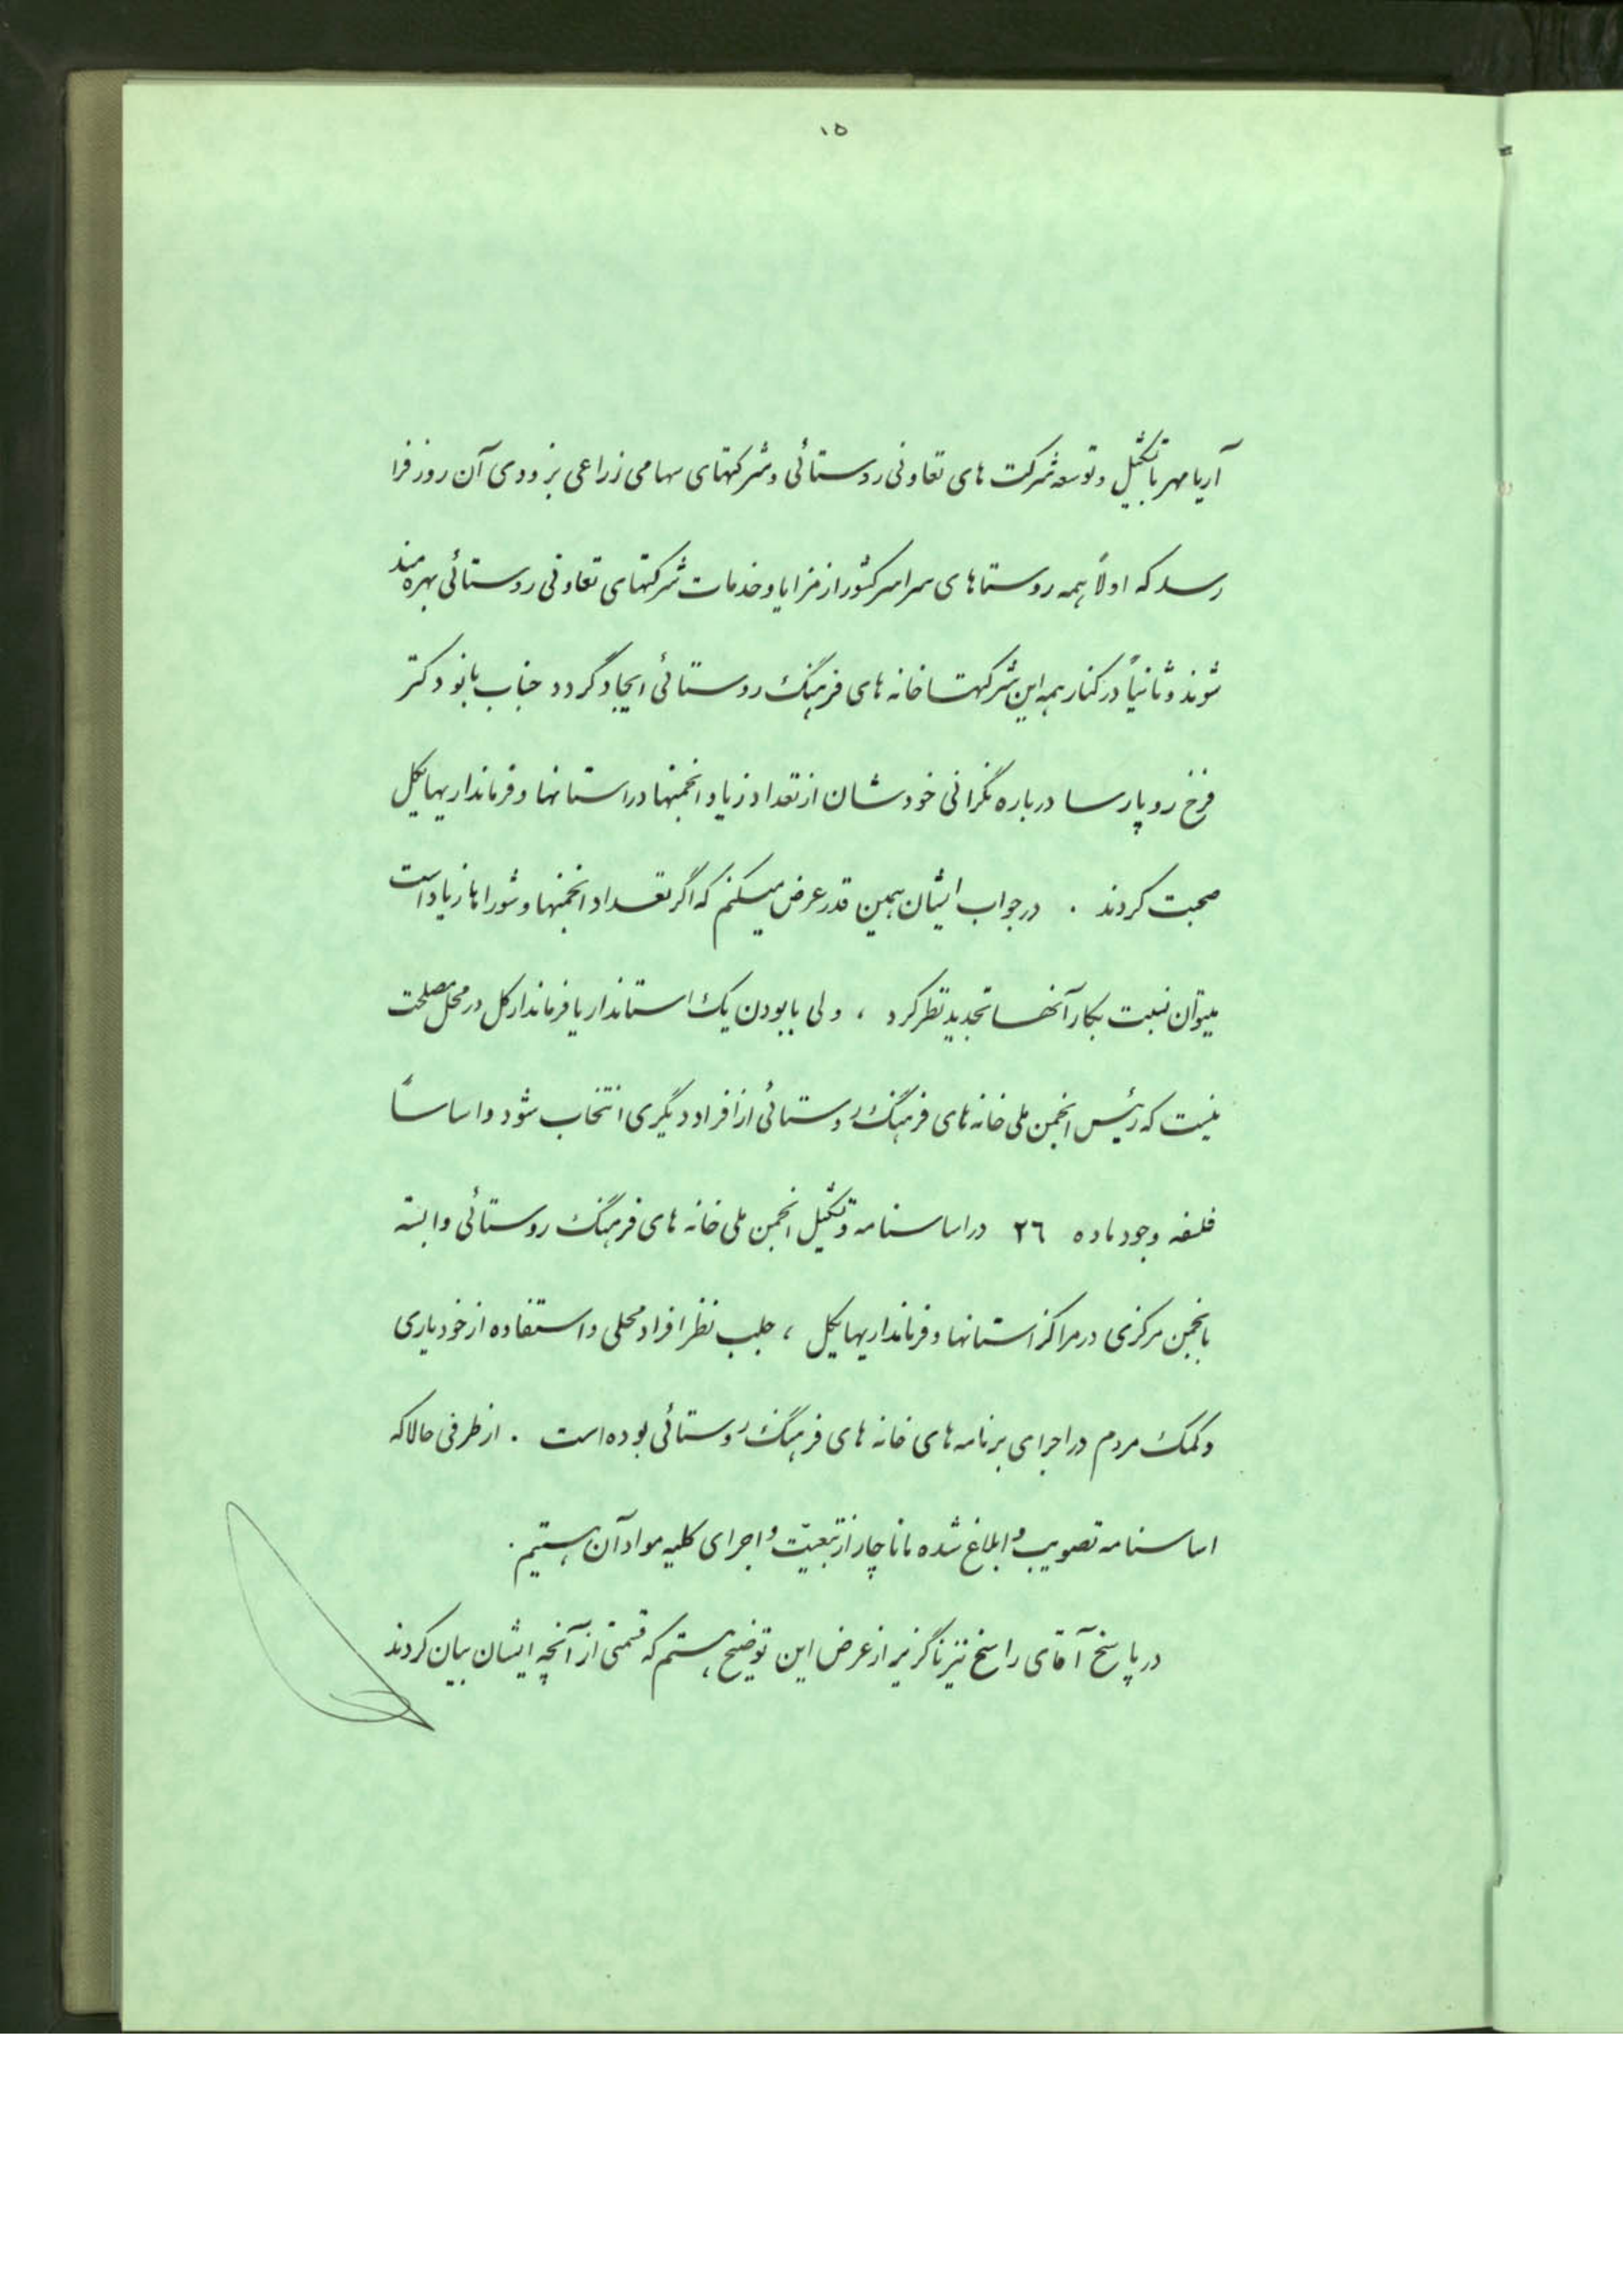 ۱۵
آریامهر با تشکیل و توسعه شرکت های تعاونی روستائی و شرکتهای سهامی زراعی بزودی آن روز فرا
رسد که اولاً همه روستاهای سراسر کشور از مزایا و خدمات شرکتهای تعاونی روستائی بهره مند
شوند و ثانیاً در کنار همه این شرکتها خانه های فرهنگ روستائی ایجاد گردد جناب بانو دکتر
فرخ رو پارسا درباره نگرانی خودشان از تعداد زیاد انجمنها در استانها و فرمانداریهایکل
صحبت کردند . در جواب ایشان همین قدر عرض میکنم که اگر تعداد انجمنها و شوراها زیاد است
میتوان نسبت بکار آنها تجدید نظر کرد ، ولی با بودن یک استاندار یا فرماندار کل در محل مصلحت
نیست که رئیس انجمن ملی خانه های فرهنگ روستائی از افراد دیگری انتخاب شود و اساساً
فلسفه وجود ماده ۲۶ در اساسنامه و تشکیل انجمن ملی خانه های فرهنگ روستائی وابسته
بانجمن مرکزی در مراکز استانها و فرمانداریهایکل ، جلب نظر افراد محلی و استفاده از خودیاری
و کمک مردم در اجرای برنامه های خانه های فرهنگ روستائی بوده است . از طرفی حالا که
اساسنامه تصویب و ابلاغ شده ما ناچار از تبعیّت و اجرای کلیه مواد آن هستیم .
در پاسخ آقای راسخ نیز ناگزیر از عرض این توضیح هستم که قسمتی از آنچه ایشان بیان کردند